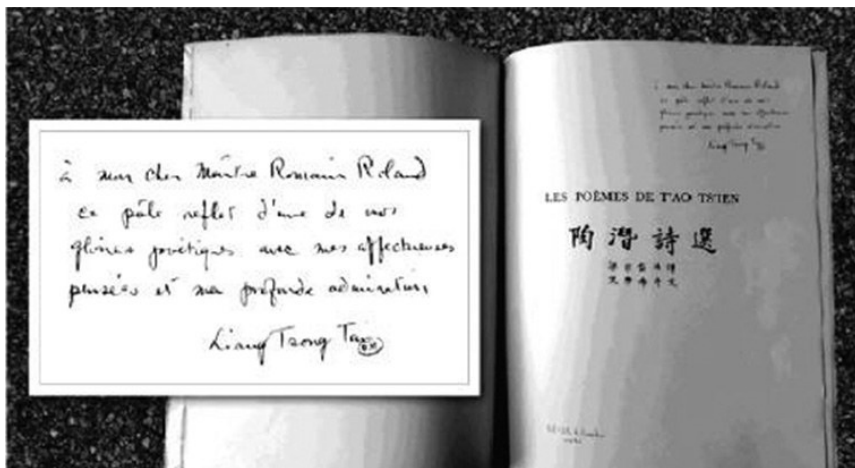 à mon cher Maître Romain Roland
ce pâle reflet d'une de nos
gloires poétiques avec mes affectueuses
pensées et ma profonde admiration
Liang Tsong Tai
LES POÈMES DE T'AO TS'IEN
陶潛詩選
梁宗岱法譯